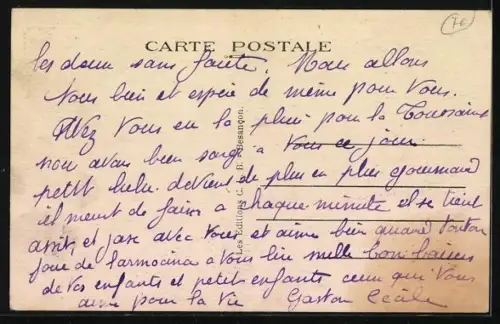 76
CARTE POSTALE
les deux sans faute. Nous allons
tous bien et espère de même pour Vous.
Avez Vous eu la pluie pour la Toussaint
nou avon bien songé a Vous ce jour
petit lulu devient de plus en plus gourmand
il meurt de faim a chaque minute et se tient
assit, et jase avec Vous et aime bien quand tonton
joue de l'armonica a Vous lire mille bon baisers
de Vos enfants et petit enfants ceux qui Vous
aime pour la Vie Gaston Cécile
Les Editions C. L. B. - Besançon.